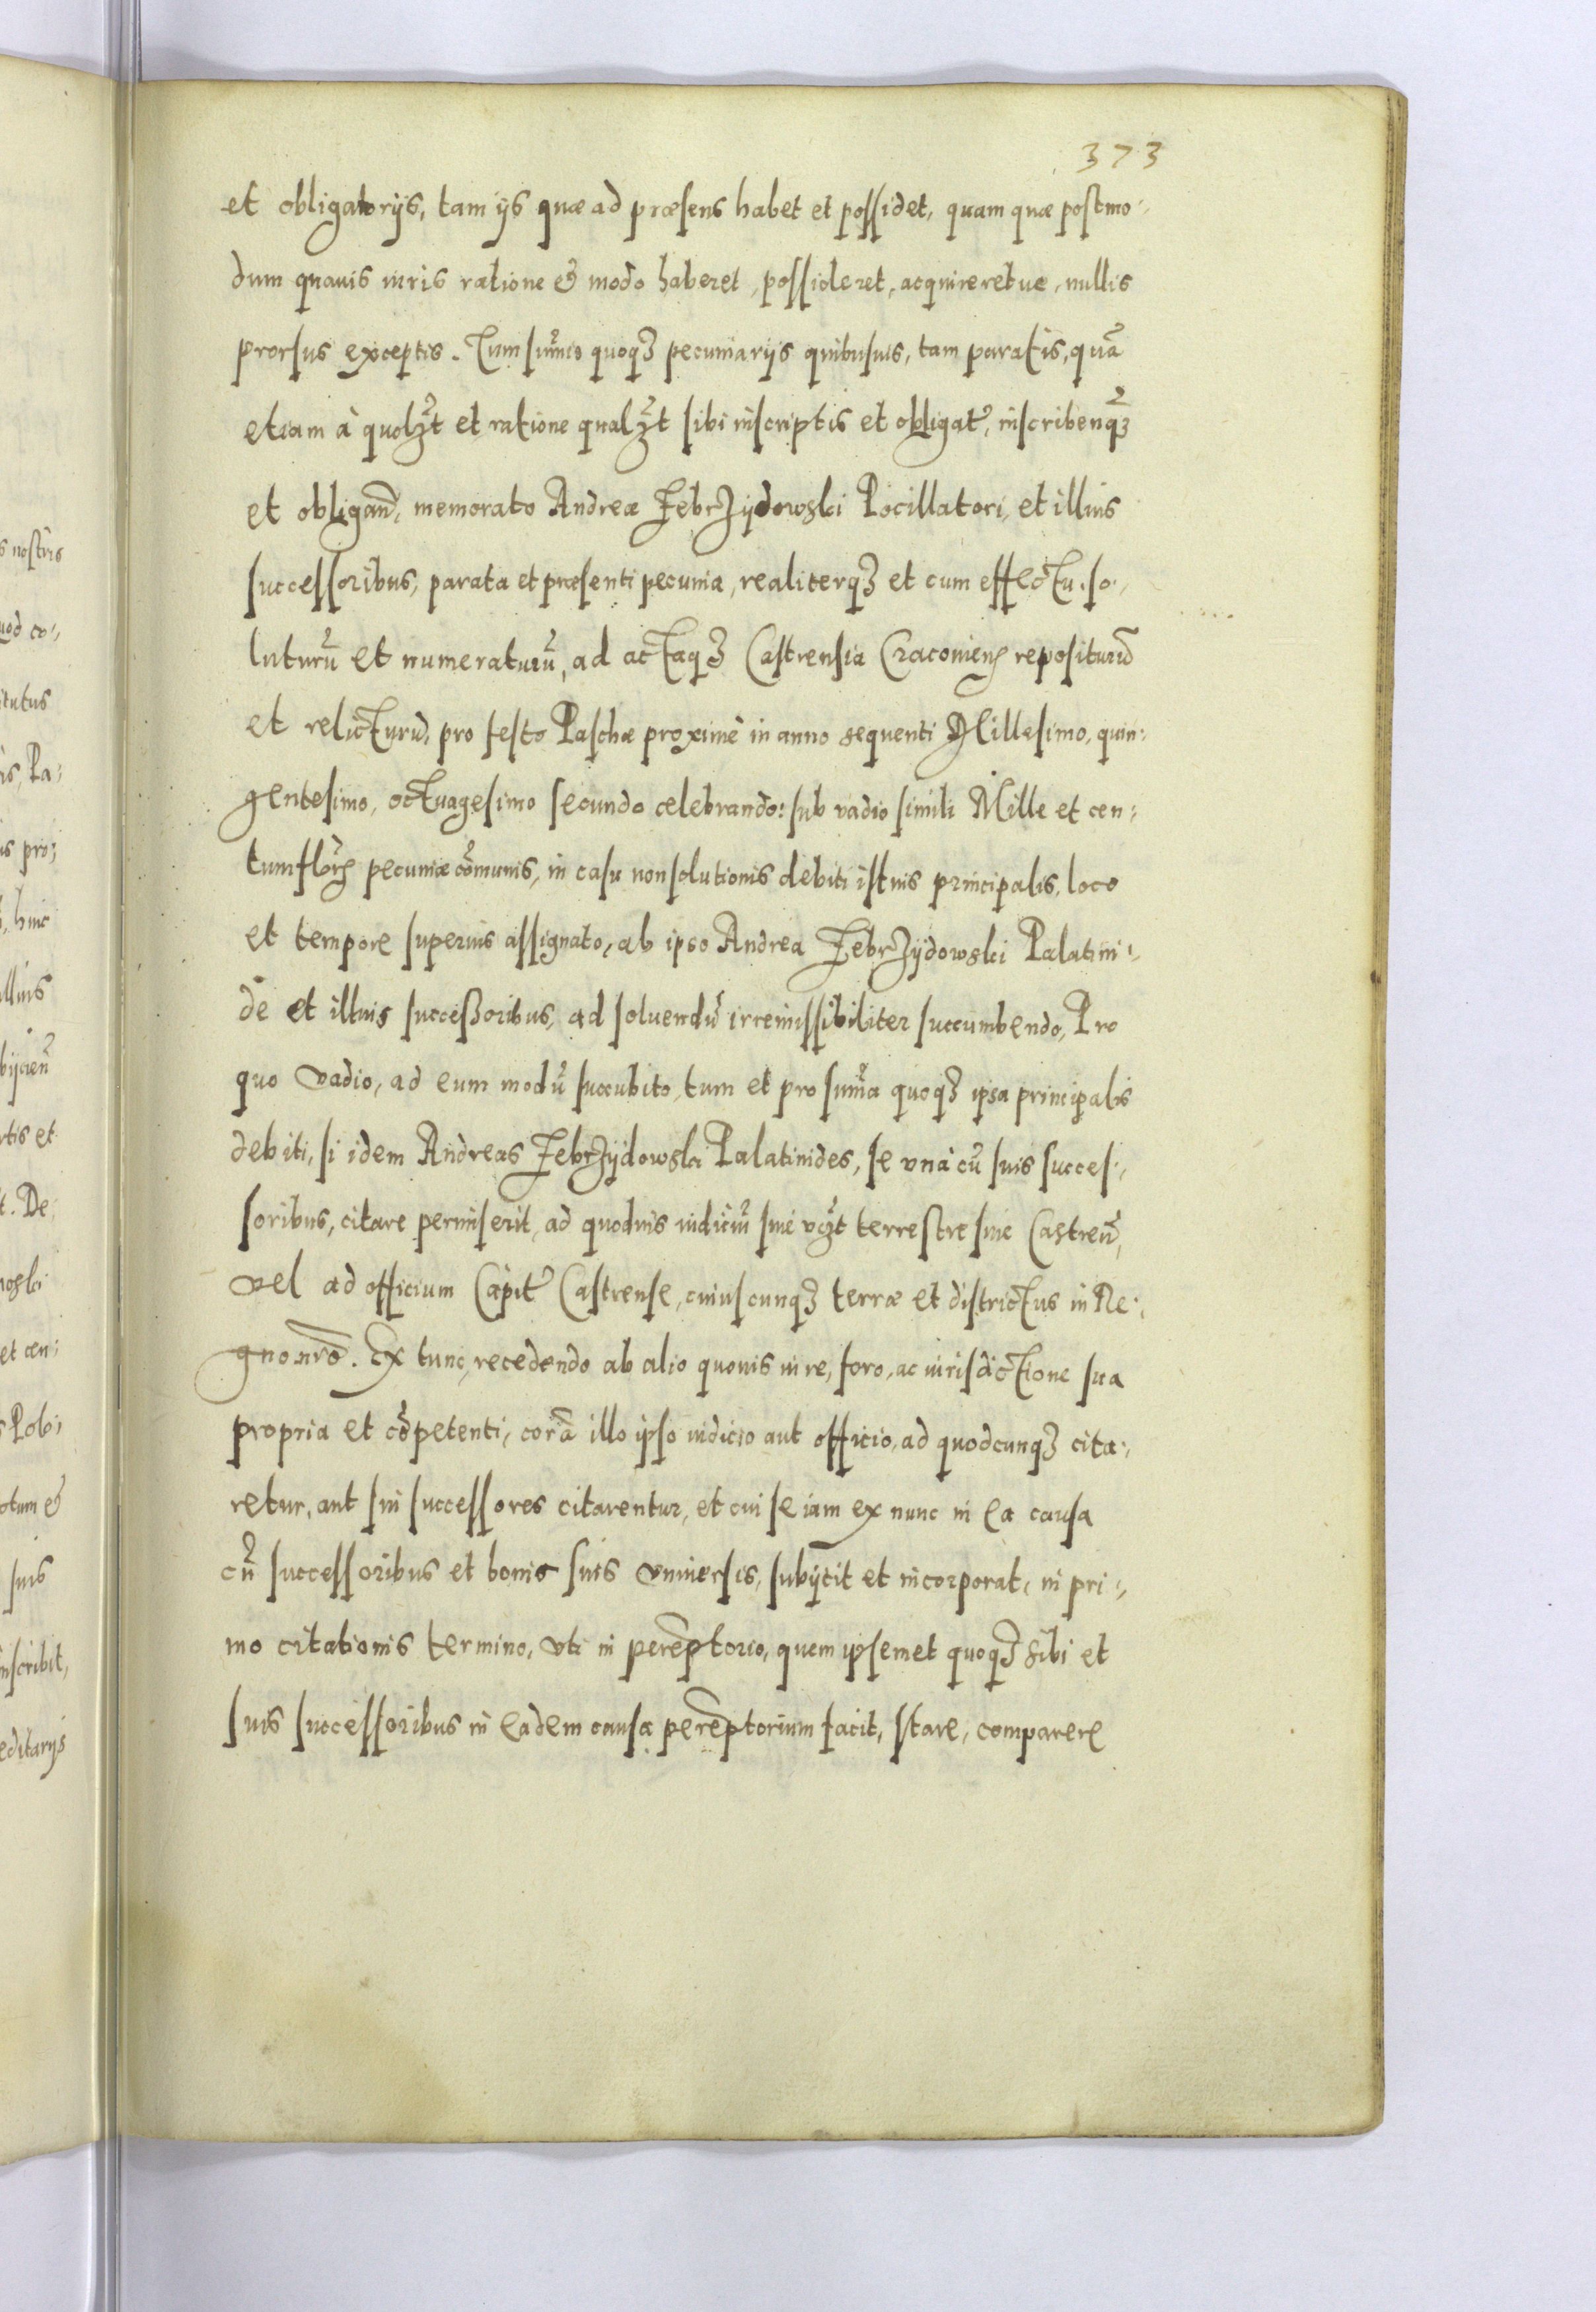 373
et obligatorijs, tam ijs quæ ad præsens habet et possidet, quam quæ postmo-
dum quauis iuris ratione & modo haberet, possideret, acquireretue, nullis
prorsus exceptis. Tum sum̃is quoqꝫ pecuniarijs quibusuis, tam paratis, quã
etiam à quolꝫt et ratione qualꝫt sibi inscriptis et obligat̃, inscribenqꝫ
et obligan̄d, memorato Andreæ Zebrzydowski Pocillatori, et illius
successoribus, parata et præsenti pecunia, realiterqꝫ et cum effectu so-
luturũ et numeraturũ, ad actaqꝫ Castrensia Cracouien̄ repositurũ
et relicturũ, pro festo Paschæ proximè in anno sequenti Millesimo, quin-
gentesimo, octuagesimo secundo celebrando: sub vadio simili Mille et cen-
tum flõr pecuniæ cõmunis, in casu non solutionis debiti istius principalis, loco
et tempore superius assignato, ab ipso Andrea Zebrzydowski Palatini-
de et illius successoribus, ad soluendũ irremissibiliter succumbendo, Pro
quo vadio, ad eum modũ succubito, tum et pro sum̃a quoqꝫ ipsa principalis
debiti, si idem Andreas Zebrzydowski Palatinides, se vnà cũ suis succes-
soribus, citare permiserit, ad quoduis iudiciũ siue vꝫt terrestre siue Castreñ,
vel ad officium Capit̃ Castrense, cuiuscunqꝫ terræ et districtus in Re-
gno nr̃o. Ex tunc, recedendo ab alio quouis iure, foro, ac iurisdictione sua
propria et cõpetenti, corã illo ipso iudicio aut officio, ad quodcunqꝫ cita-
retur, aut sui successores citarentur, et cui se iam ex nunc in ea causa
cũ successoribus et bonis suis vniuersis, subijcit et incorporat, in pri-
mo citationis termino, vti in perẽptorio, quem ipsemet quoqꝫ sibi et
suis successoribus in eadem causa perẽptorium facit, stare, comparere